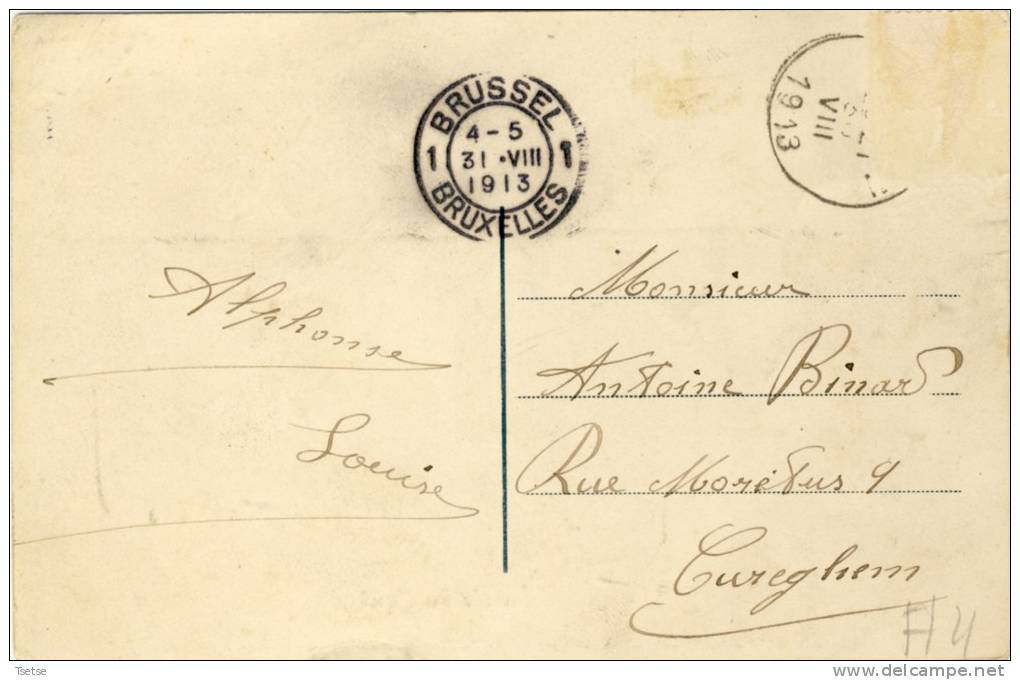 BRUSSEL
4-5
1 31 •VIII 1
1913
BRUXELLES
VIII
1913
Alphonse
Louise
Monsieur
Antoine Binard
Rue Moretus 9
Cureghem
H4
Tsetse
www.delcampe.net